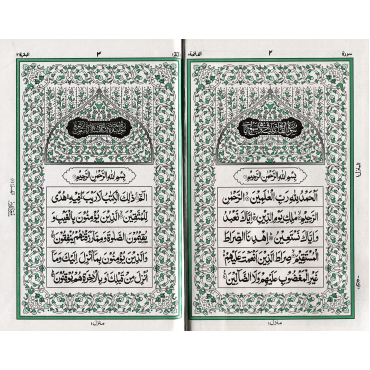 سورة
٢
الفاتحة
بِسْمِ اللهِ الرَّحْمٰنِ الرَّحِيْمِ
اَلْحَمْدُ لِلّٰهِ رَبِّ الْعٰلَمِيْنَ ۙ الرَّحْمٰنِ
الرَّحِيْمِ ۙ مٰلِكِ يَوْمِ الدِّيْنِ ؕ اِيَّاكَ نَعْبُدُ
وَاِيَّاكَ نَسْتَعِيْنُ ؕ اِهْدِنَا الصِّرَاطَ
الْمُسْتَقِيْمَ ۙ صِرَاطَ الَّذِيْنَ اَنْعَمْتَ عَلَيْهِمْ ۙ
غَيْرِ الْمَغْضُوْبِ عَلَيْهِمْ وَلَا الضَّآلِّيْنَ
منزل ١
٣
البقرة ٢
بِسْمِ اللهِ الرَّحْمٰنِ الرَّحِيْمِ
الٓمّٓ ۚ ذٰلِكَ الْكِتٰبُ لَا رَيْبَ ۛ فِيْهِ ۛ هُدًى
لِّلْمُتَّقِيْنَ ۙ الَّذِيْنَ يُؤْمِنُوْنَ بِالْغَيْبِ وَ
يُقِيْمُوْنَ الصَّلٰوةَ وَمِمَّا رَزَقْنٰهُمْ يُنْفِقُوْنَ ۙ
وَالَّذِيْنَ يُؤْمِنُوْنَ بِمَآ اُنْزِلَ اِلَيْكَ وَمَآ
اُنْزِلَ مِنْ قَبْلِكَ ۚ وَبِالْاٰخِرَةِ هُمْ يُوْقِنُوْنَ ؕ
منزل ١